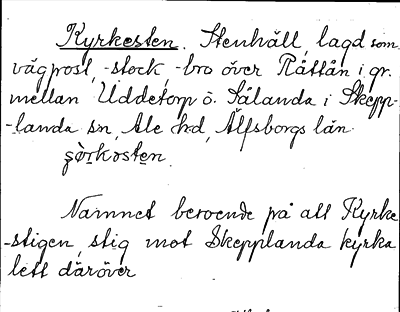 Kyrkesten. Stenhäll, lagd som
vägpost, -stock, -bro över Råttån i gr.
mellan Uddetorp o. Sålanda i Skepp-
-landa sn, Ale hd, Älfsborgs län.
Namnet beroende på att Kyrke
-stigen, stig mot Skepplanda kyrka
lett däröver